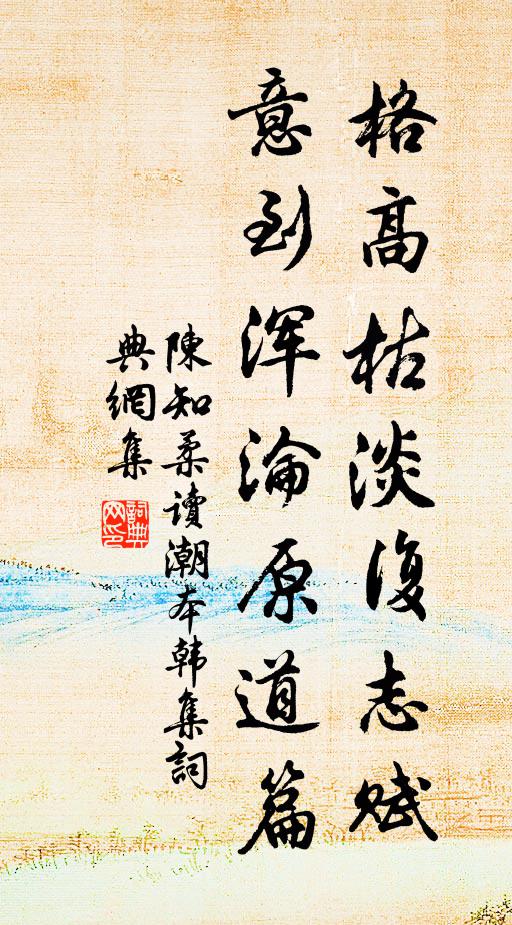 格高枯淡復志赋
意到浑淪原道篇
陳知柔讀潮本韩集詞
典網集
詞典网印